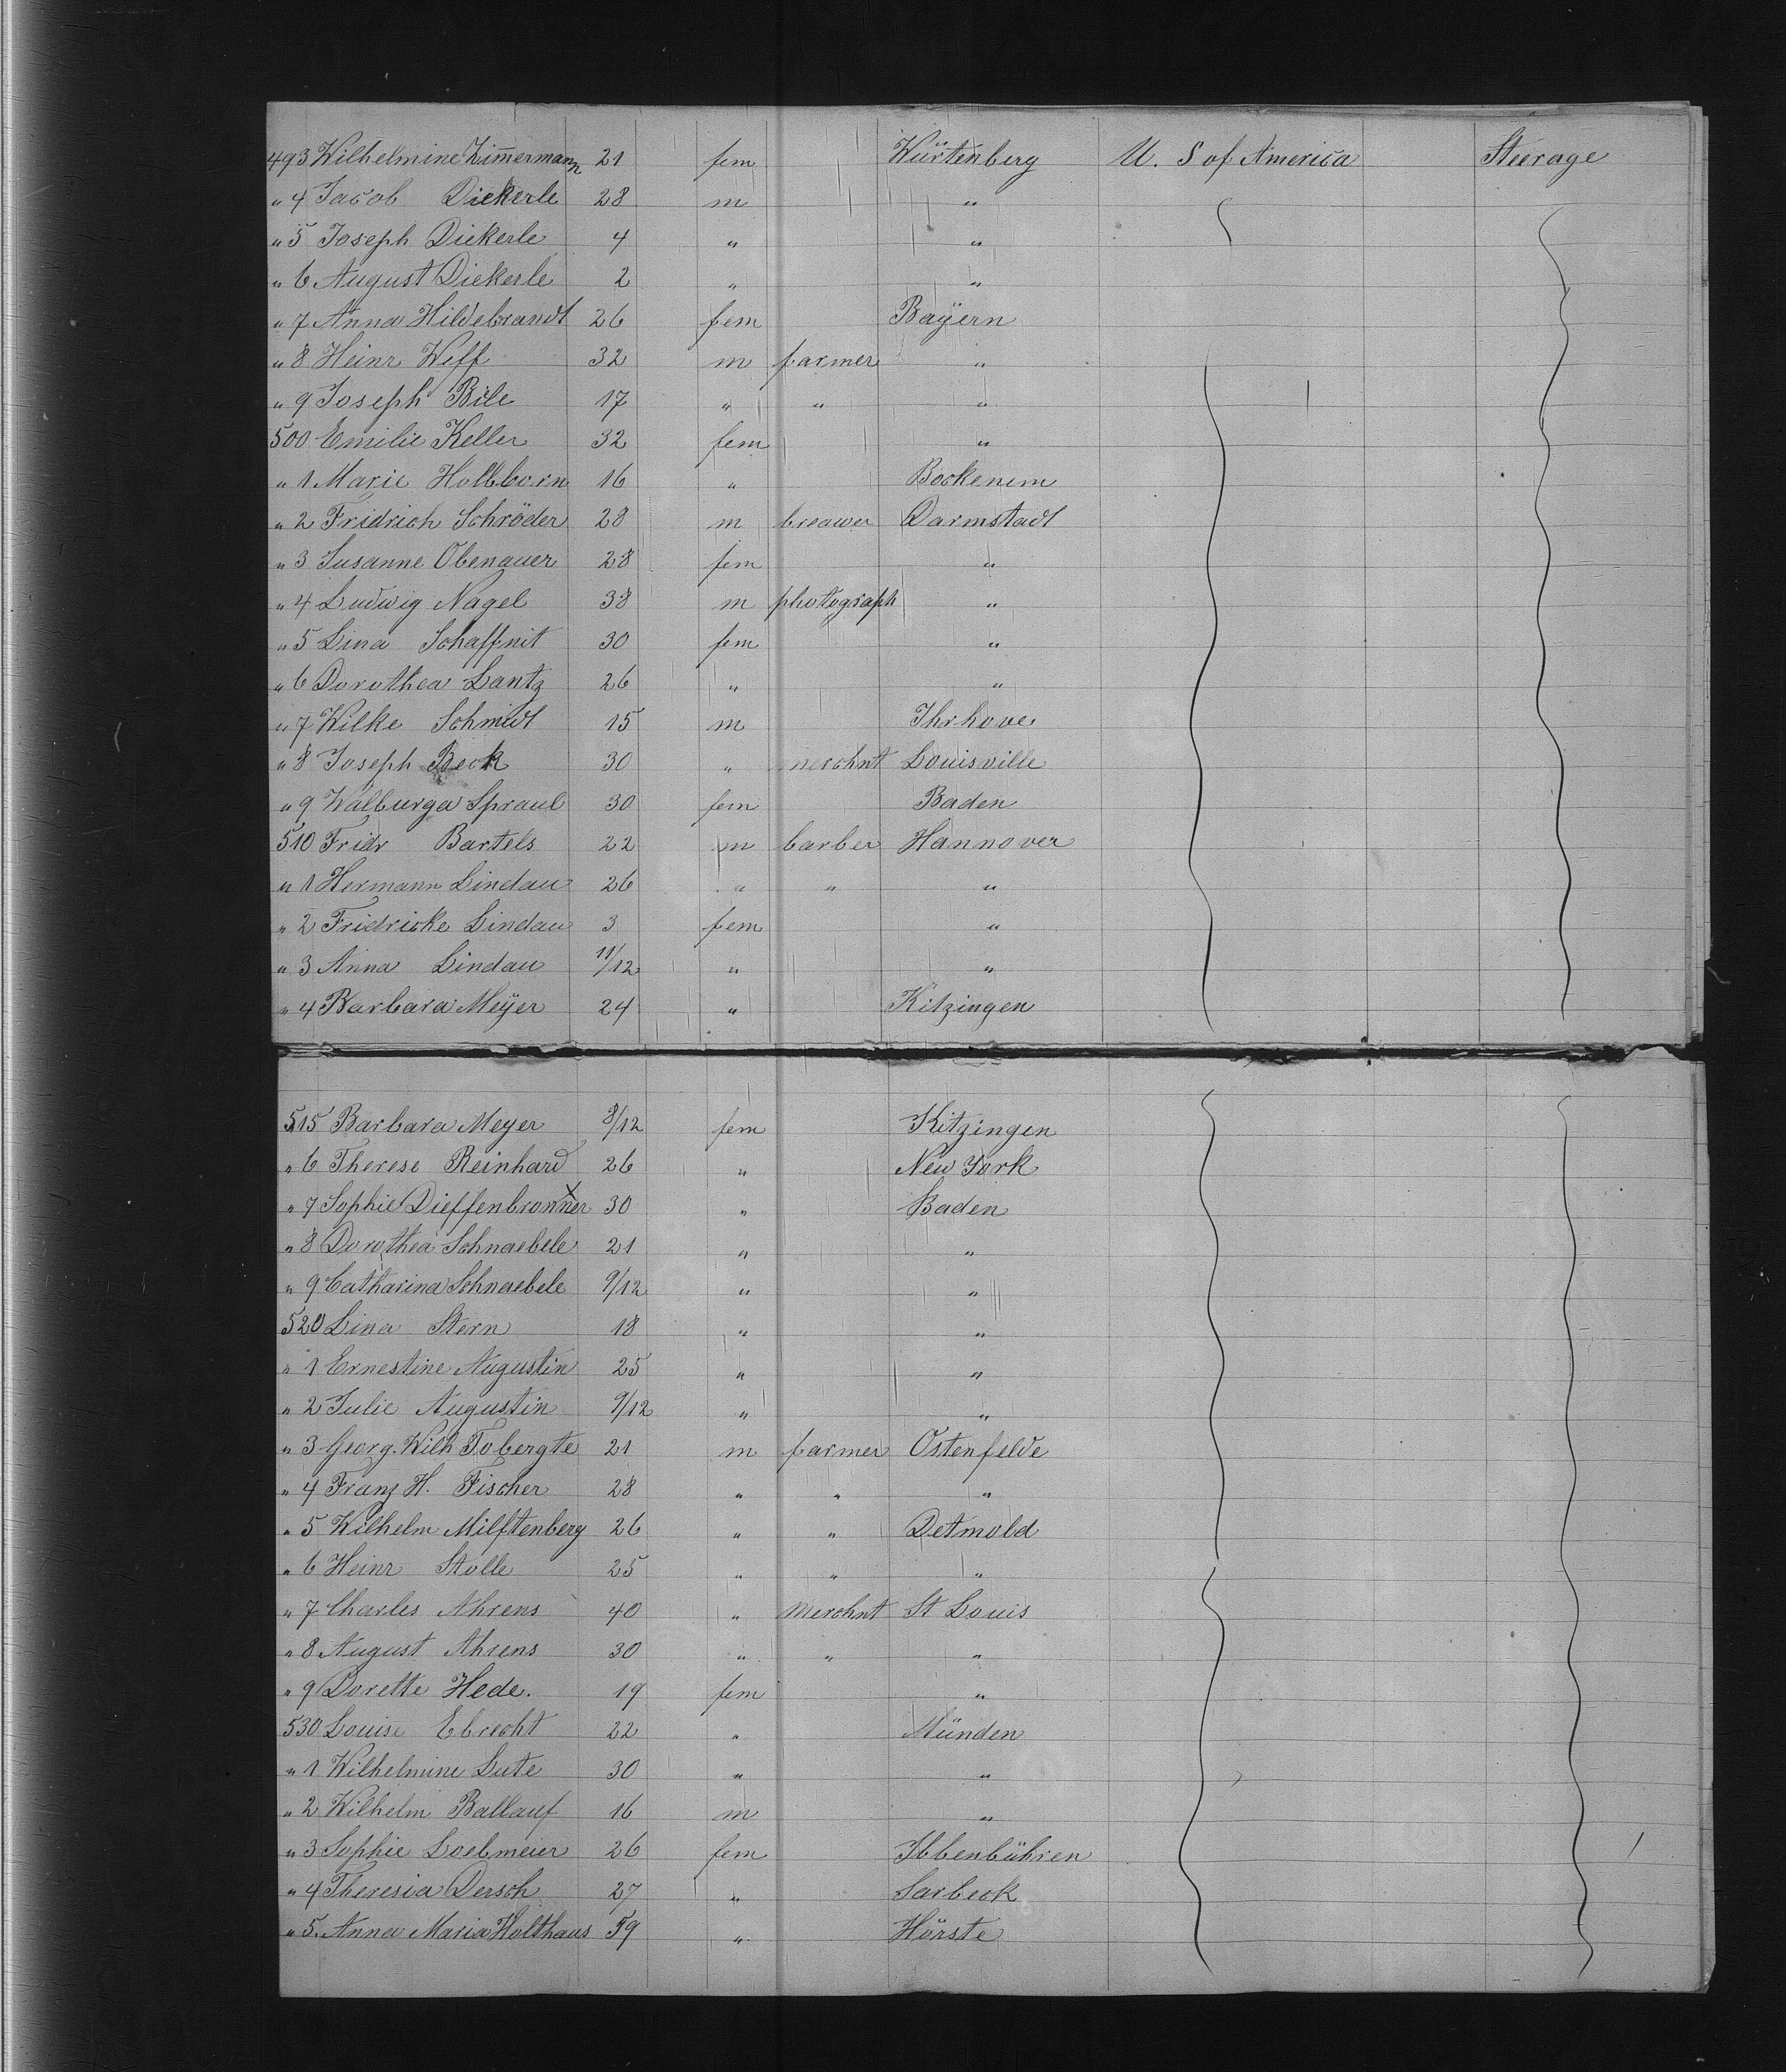 493 Wilhelmine Zimmermann 21 fem Würtenberg U. S of America Steerage
" 4 Jacob Diekerle 28 m "
" 5 Joseph Diekerle 4 " "
" 6 August Diekerle 2 " "
" 7 Anna Hildebrandt 26 fem Bayern
" 8 Heinr Weff 32 m farmer "
" 9 Joseph Bile 17 " " "
500 Emilie Keller 32 fem "
" 1 Marie Holbborn 16 " Bockenem
" 2 Fridrich Schröder 28 m breawer Darmstadt
" 3 Susanne Obenauer 28 fem "
" 4 Ludwig Nagel 38 m photograph "
" 5 Lina Schaffnit 30 fem "
" 6 Dorothea Lantz 26 " "
" 7 Wilke Schmidt 15 m Ihrhove
" 8 Joseph Beck 30 " merchnt Louisville
" 9 Walburga Spraul 30 fem Baden
510 Fridr Bartels 22 m barber Hannover
" 1 Hermann Lindau 26 " " "
" 2 Fridricke Lindau 3 fem "
" 3 Anna Lindau 11/12 " "
" 4 Barbara Meÿer 24 " Kitzingen
515 Barbara Meyer 8/12 fem Kitzingen
" 6 Therese Reinhard 26 " New York
" 7 Sophie Dieffenbronner 30 " Baden
" 8 Dorothea Schnaebele 21 " "
" 9 Catharina Schnaebele 9/12 " "
520 Lina Stern 18 " "
" 1 Ernestine Augustin 25 " "
" 2 Julie Augustin 9/12 " "
" 3 Georg. Wilh Tobergte 21 m farmer Ostenfelde
" 4 Franz H. Fischer 28 " " "
" 5 Wilhelm Milftenberg 26 " " Detmold
" 6 Heinr Stolle 25 " " "
" 7 Charles Ahrens 40 " merchnt St Louis
" 8 August Ahrens 30 " " "
" 9 Dorette Hede. 19 fem "
530 Louise Ebrecht 22 " Münden
" 1 Wilhelmine Lute 30 " "
" 2 Wilhelm Ballauf 16 m "
" 3 Sophie Loebmeier 26 fem Ibbenbühren
" 4 Theresia Dersch 27 " Sarbeck
" 5. Anna Maria Holthaus 59 " Hörste